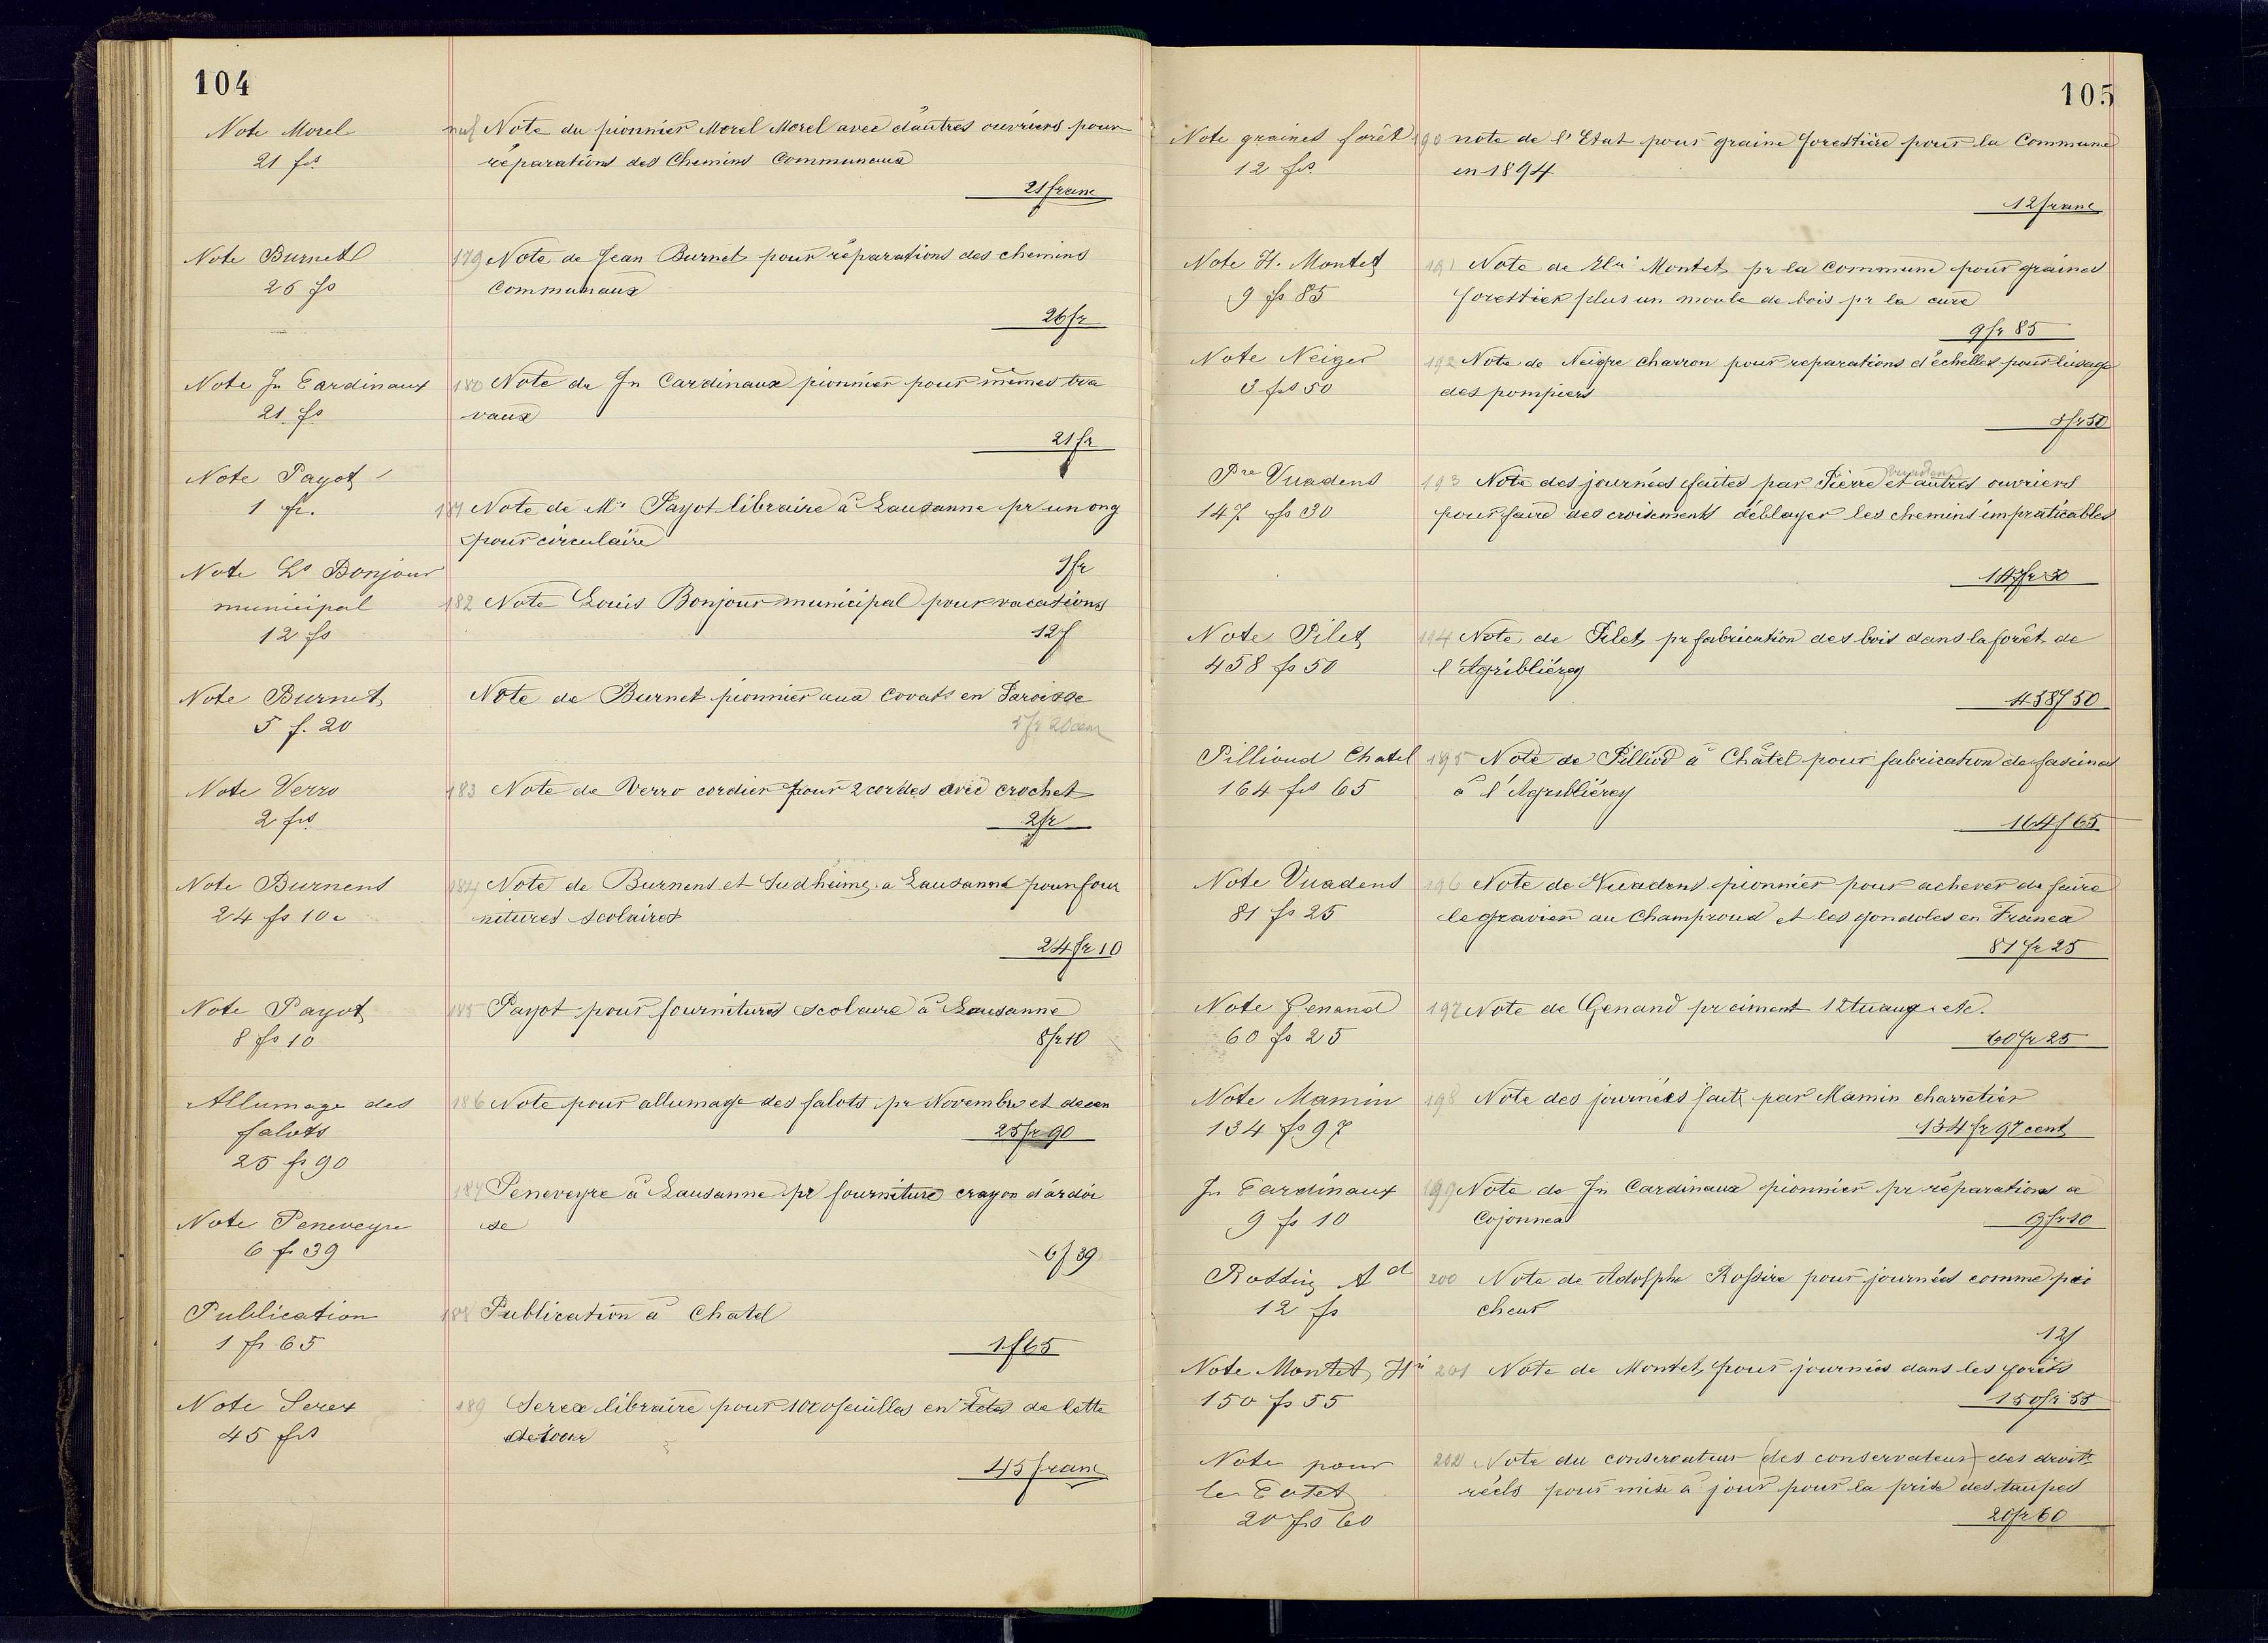 104
Note Morel
21 frs
Note du pionnier Morel Morel avec d'autres ouvriers pour
réparations des Chemins Communaux
21 franc
Note Burnet
26 fs
179 Note de Jean Burnet pour réparations des chemins
Communaux
26 fr
Note Jn Cardinaux
21 fs
180 Note de Jn Cardinaux pionnier pour mêmes tra
vaux
21 fr
Note Payot
1 fr.
181 Note de Mr Payot libraire à Lausanne pr un
pour circulaire
1 fr
Note Ls Bonjour
municipal
12 fs
182 Note Louis Bonjour municipal pour vacations
12 f
Note Burnet
5 f. 20
Note de Burnet pionnier aux Covats en Paroisse
5 fr 20 cen
Note Verro
2 frs
183 Note de Verro cordier pour 2 cordes avec crochet
2 fr
Note Burnens
24 fs 10 c
184 Note de Burnens et à Lausanne pour four
nitures scolaires
24 fr 10
Note Payot
8 fs 10
185 Payot pour fournitures scolaire à Lausanne
8 fr 10
Allumage des
falots
25 fr 90
186 Note pour allumage des falots pr Novembre et decem
25 fr 90
Note Peneveyre
6 f 39
187 Peneveyre à Lausanne pr fourniture crayon d'ardoi
se
6 f 39
Publication
1 fr 65
188 Publication à Chatel
1 f 65
Note Serex
45 frs
189 Serex libraire pour 1000 feuilles en têtes de lette
45 franc
105
Note graines forêt
12 frs
190 note de l'Etat pour graine forestière pour la Commune
en 1894
12 franc
Note H. Montet
9 fs 85
191 Note de Hri Montet pr la commune pour graines
forestier plus un moule de bois pr la cure
9 fr 85
Note Neiger
3 frs 50
192 Note de Neigre charron pour reparations d'échelles pour l'usage
des pompiers
3 fr 50
Pre Vuadens
147 fs 30
193 Note des journées faites par Pierre Vuadens et autres ouvriers
pour faire des croisements déblayer les chemins impraticables
147 fr 30
Note Pilet
458 fs 50
194 Note de Pilet pr fabrication des bois dans la forêt de
l'Agriblièrey
458 f 50
Pillioud Chatel
164 frs 65
195 Note de Pilliod à Châtel pour fabrication de fascines
à l'Agriblièrey
164 f 65
Note Vuadens
81 fs 25
196 Note de Vuadens pionnier pour achever de faire
le gravier au Champroud et les gondoles en Franca
81 fr 25
Note Genand
60 fs 25
197 Note de Genand pr ciment 12 tuaux etc.
60 fr 25
Note Mamin
134 fs 97
198 Note des journées faits par Mamin charretier
134 fr 97 cent
Jn Cardinaux
9 fs 10
199 Note de Jn Cardinaux pionnier pr réparations a
Cojonnex
9 fr 10
Rossire Ad
12 fs
200 Note de Adolphe Rossire pour journées comme pio
cheur
12 f
Note Montet Hri
150 fs 55
201 Note de Montet pour journées dans les forêts
150 fr 55
Note pour
le
20 frs 60
202 Note du conservateur (des conservateur) des droits
réels pour mise à jour pour la prise des taupes
20 fr 60